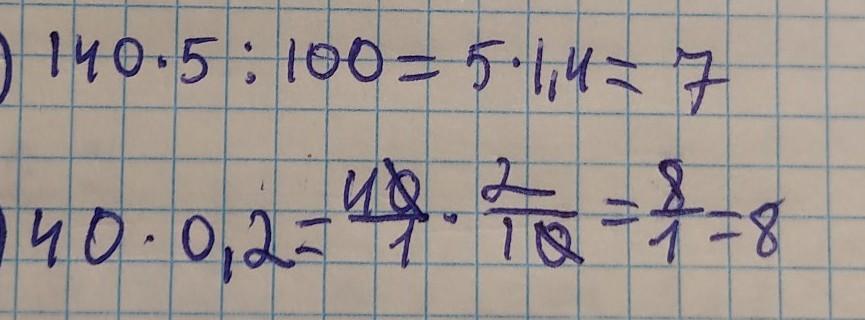 ) 140·5:100=5·1,4=7
) 40·0,2=40/1·2/10=8/1=8